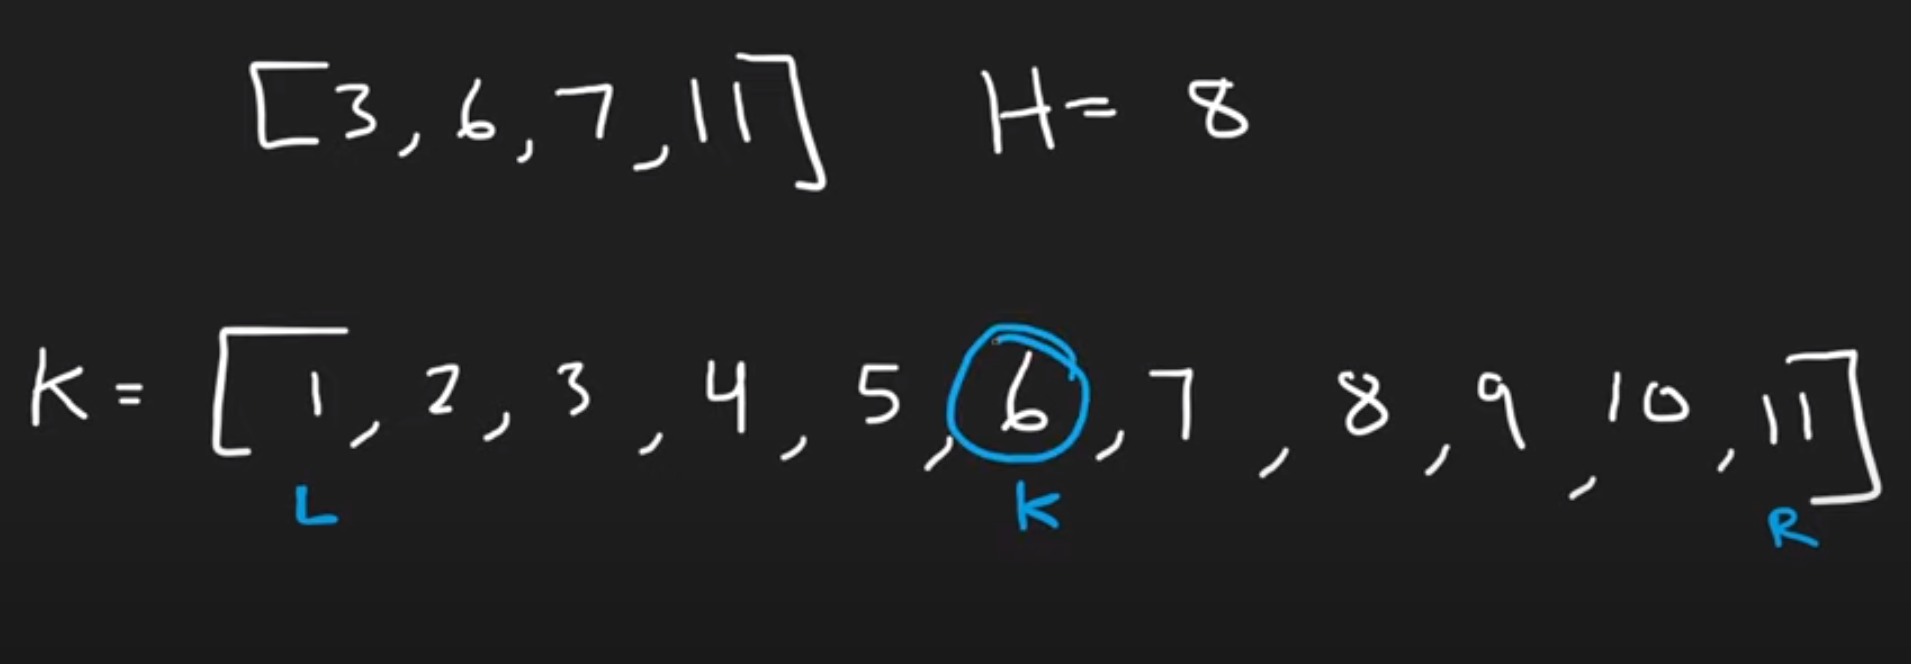 [3, 6, 7, 11] H= 8
K= [1, 2, 3, 4, 5, 6, 7, 8, 9, 10, 11]
L K R